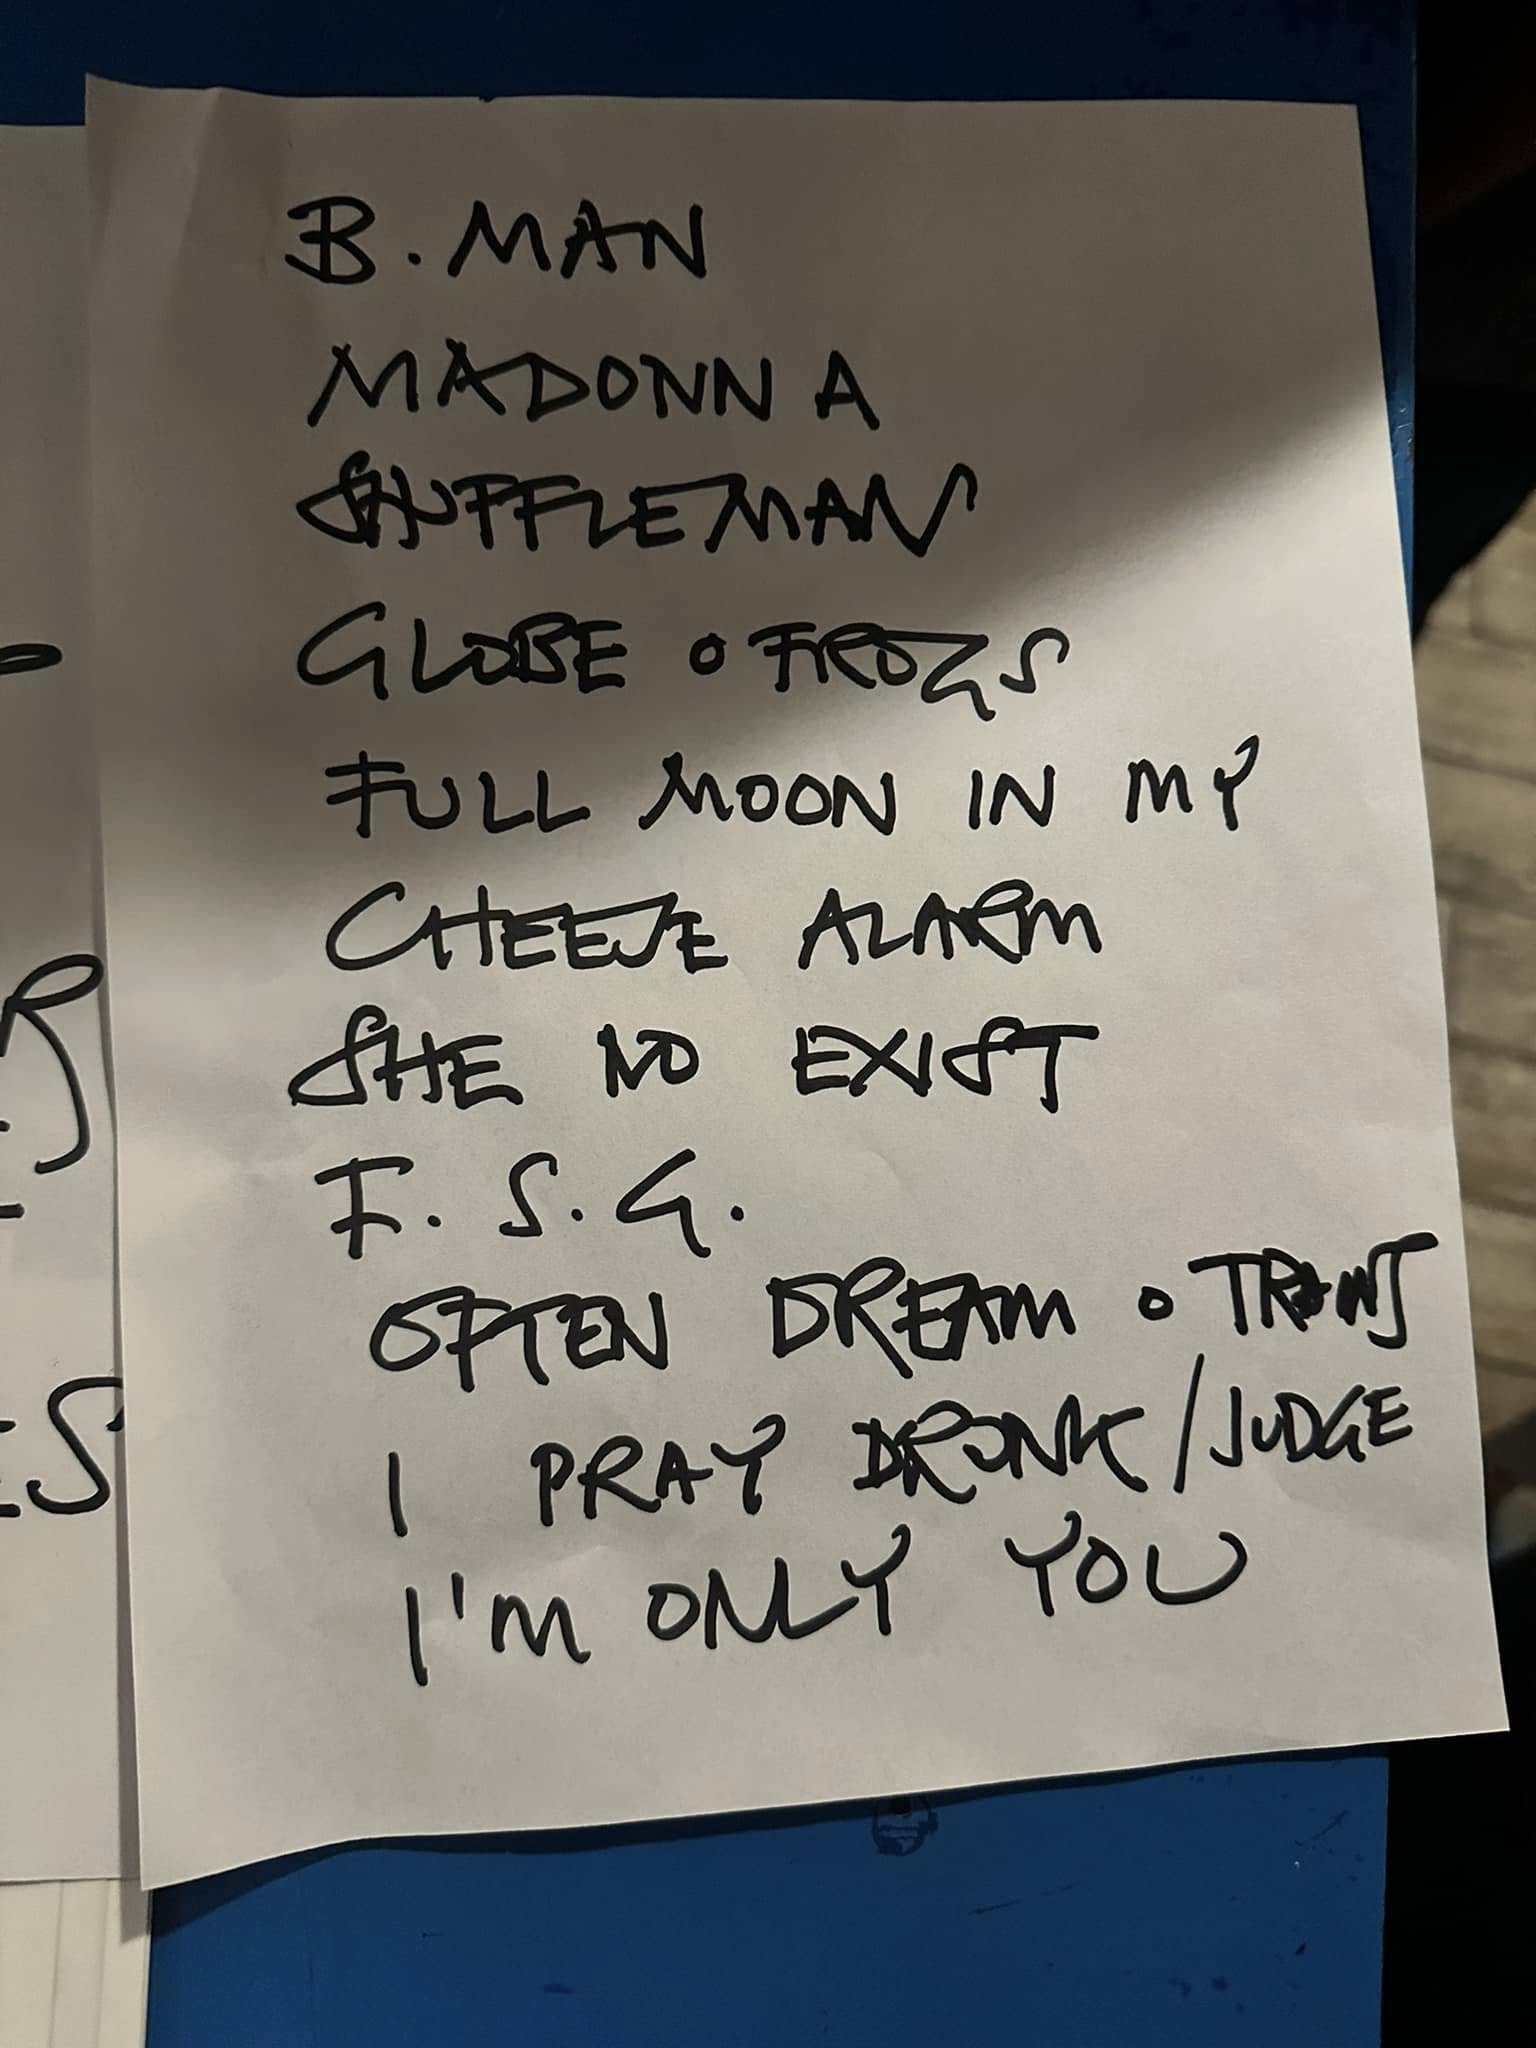 B. MAN
MADONNA
SHUFFLEMAN
GLOBE O FROGS
FULL MOON IN MY
CHEESE ALARM
SHE NO EXIST
F. S. G.
OFTEN DREAM O TRAINS
I PRAY DRONK/JUDGE
I'M ONLY YOU